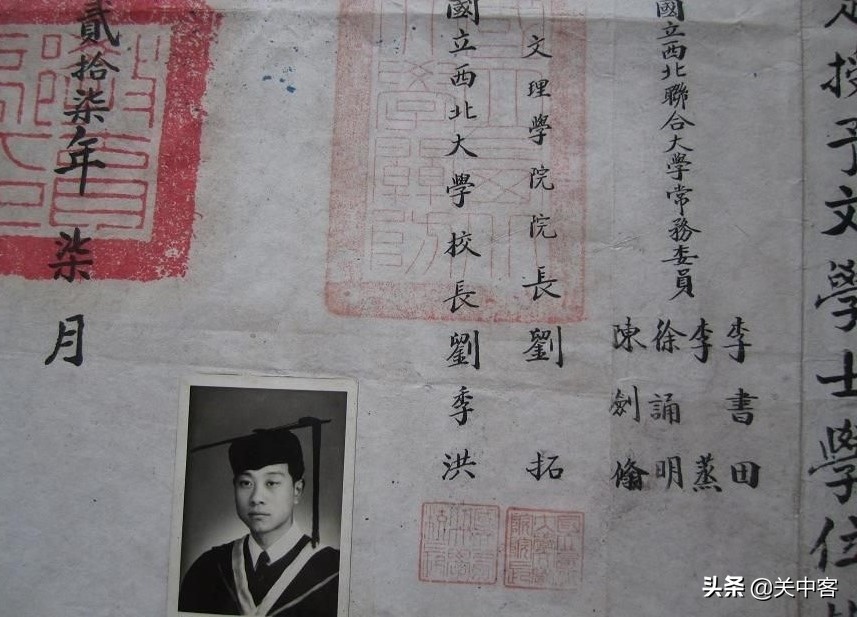 授予文學士學位
國立西北聯合大學常務委員
李書田
李蒸
徐誦明
陳劍翛
文理學院院長劉拓
國立西北大學校長劉季洪
貳拾柒年柒月
头条 @关中客